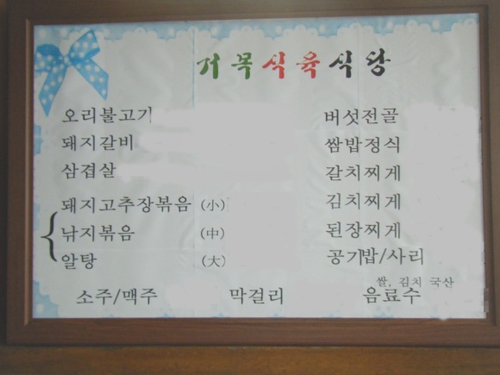 거목식육식당
오리불고기
돼지갈비
삼겹살
돼지고추장볶음 (小)
낚지볶음 (中)
알탕 (大)
버섯전골
쌈밥정식
갈치찌게
김치찌게
된장찌게
공기밥/사리
쌀, 김치 국산
소주/맥주 막걸리 음료수